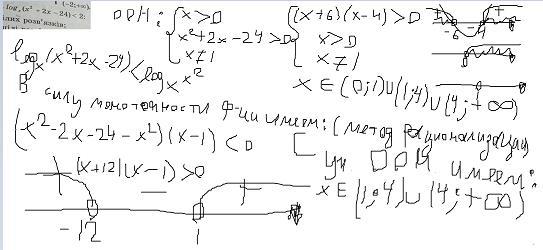 (-2;+∞).
log_x(x² - 2x - 24) < 2;
ілих розв'язків;
ОДН: { x>0
x²+2x-24>0
x≠1
{ (x+6)(x-4)>0
x>0
x≠1
+ - +
-6 4
x ∈ (0;1)∪(1;4)∪(4;+∞)
log_x(x²+2x-24) < log_x x²
В силу монотонности ф-ции имеем: (метод рационализации
(x²-2x-24-x²)(x-1) < 0
(x+12)(x-1) > 0
+ - +
-12 1
ОДН имеем:
x ∈ (1;4)∪(4;+∞)